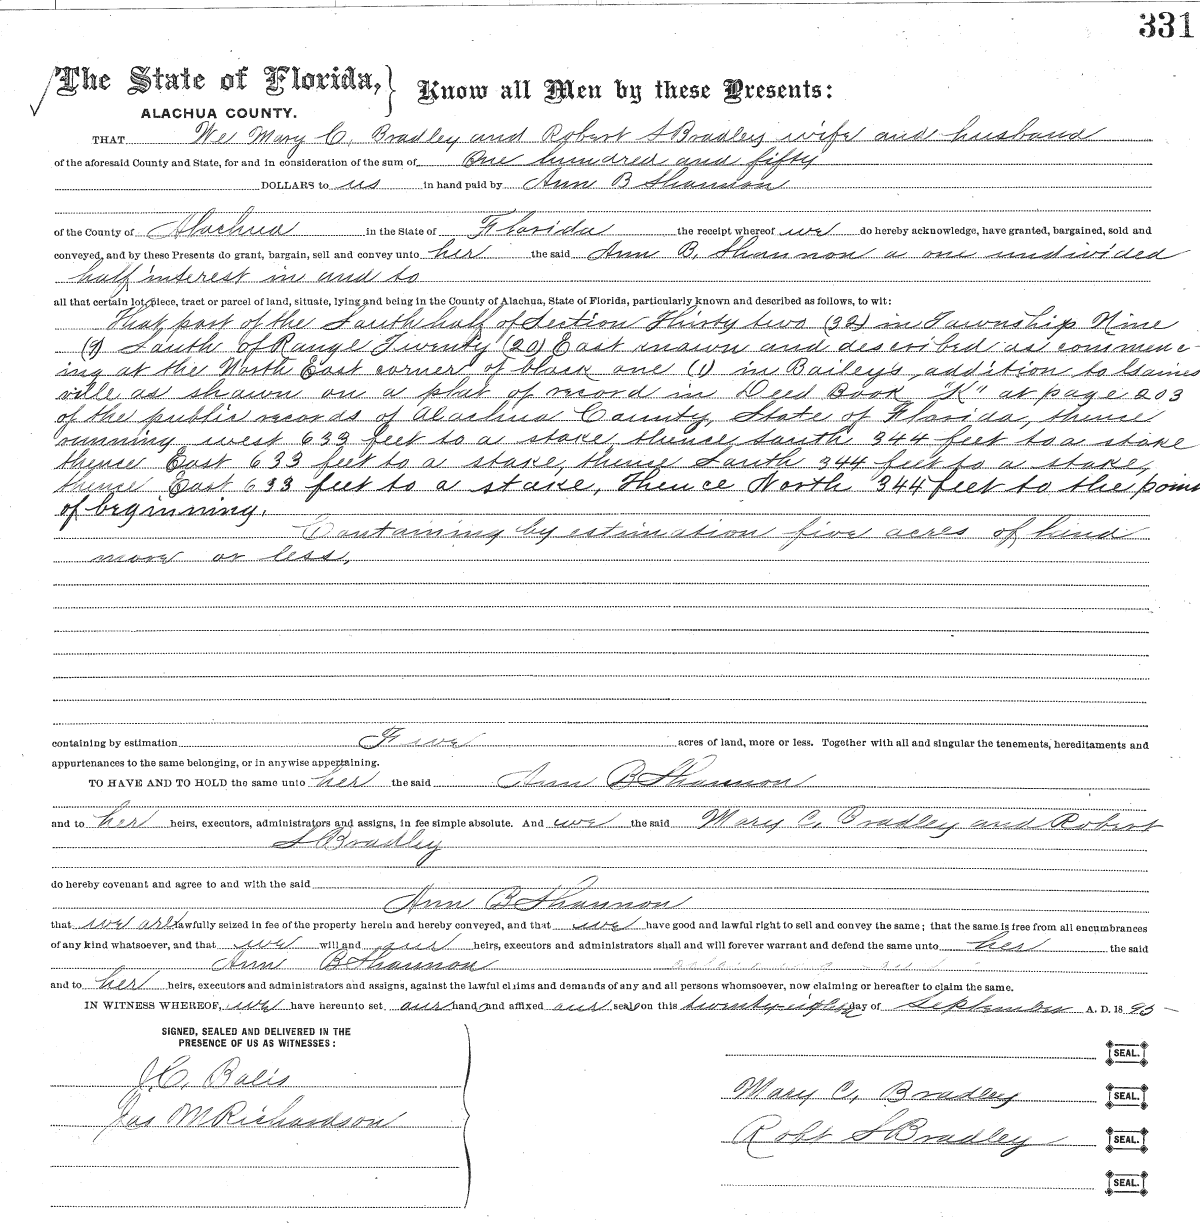 331
The State of Florida, } Know all Men by these Presents:
ALACHUA COUNTY.
THAT We Mary C. Bradley and Robert S Bradley, wife and husband
of the aforesaid County and State, for and in consideration of the sum of One hundred and fifty
DOLLARS to us in hand paid by Ann B Shannon
of the County of Alachua in the State of Florida the receipt whereof we do hereby acknowledge, have granted, bargained, sold and
conveyed, and by these Presents do grant, bargain, sell and convey unto her the said Ann B. Shannon a one undivided
half interest in and to
all that certain lot, piece, tract or parcel of land, situate, lying and being in the County of Alachua, State of Florida, particularly known and described as follows, to wit:
That part of the South half of Section Thirty two (32) in Township Nine
(9) South of Range Twenty (20) East known and described as commenc-
ing at the North East corner of block one (1) in Bailey's addition to Gaines
ville as shown on a plat of record in Deed Book "K" at page 203
of the public records of Alachua County, State of Florida, thence
running west 633 feet to a stake thence south 344 feet to a stake
thence East 633 feet to a stake, thence South 344 feet to a stake,
thence East 633 feet to a stake, Thence North 344 feet to the point
of beginning.
Containing by estimation five acres of land
more or less,
containing by estimation Five acres of land, more or less. Together with all and singular the tenements, hereditaments and
appurtenances to the same belonging, or in anywise appertaining.
TO HAVE AND TO HOLD the same unto her the said Ann B Shannon
and to her heirs, executors, administrators and assigns, in fee simple absolute. And we the said Mary C. Bradley and Robert
S Bradley
do hereby covenant and agree to and with the said
Ann B Shannon
that we are lawfully seized in fee of the property herein and hereby conveyed, and that we have good and lawful right to sell and convey the same; that the same is free from all encumbrances
of any kind whatsoever, and that we will and our heirs, executors and administrators shall and will forever warrant and defend the same unto her the said
Ann B Shannon
and to her heirs, executors and administrators and assigns, against the lawful claims and demands of any and all persons whomsoever, now claiming or hereafter to claim the same.
IN WITNESS WHEREOF, we have hereunto set our hands and affixed our seals on this twenty eighth day of September A. D. 18 95
SIGNED, SEALED AND DELIVERED IN THE
PRESENCE OF US AS WITNESSES:
SEAL.
J. C. Balis
Mary C. Bradley SEAL.
Jas M Richardson
Robt S Bradley SEAL.
SEAL.